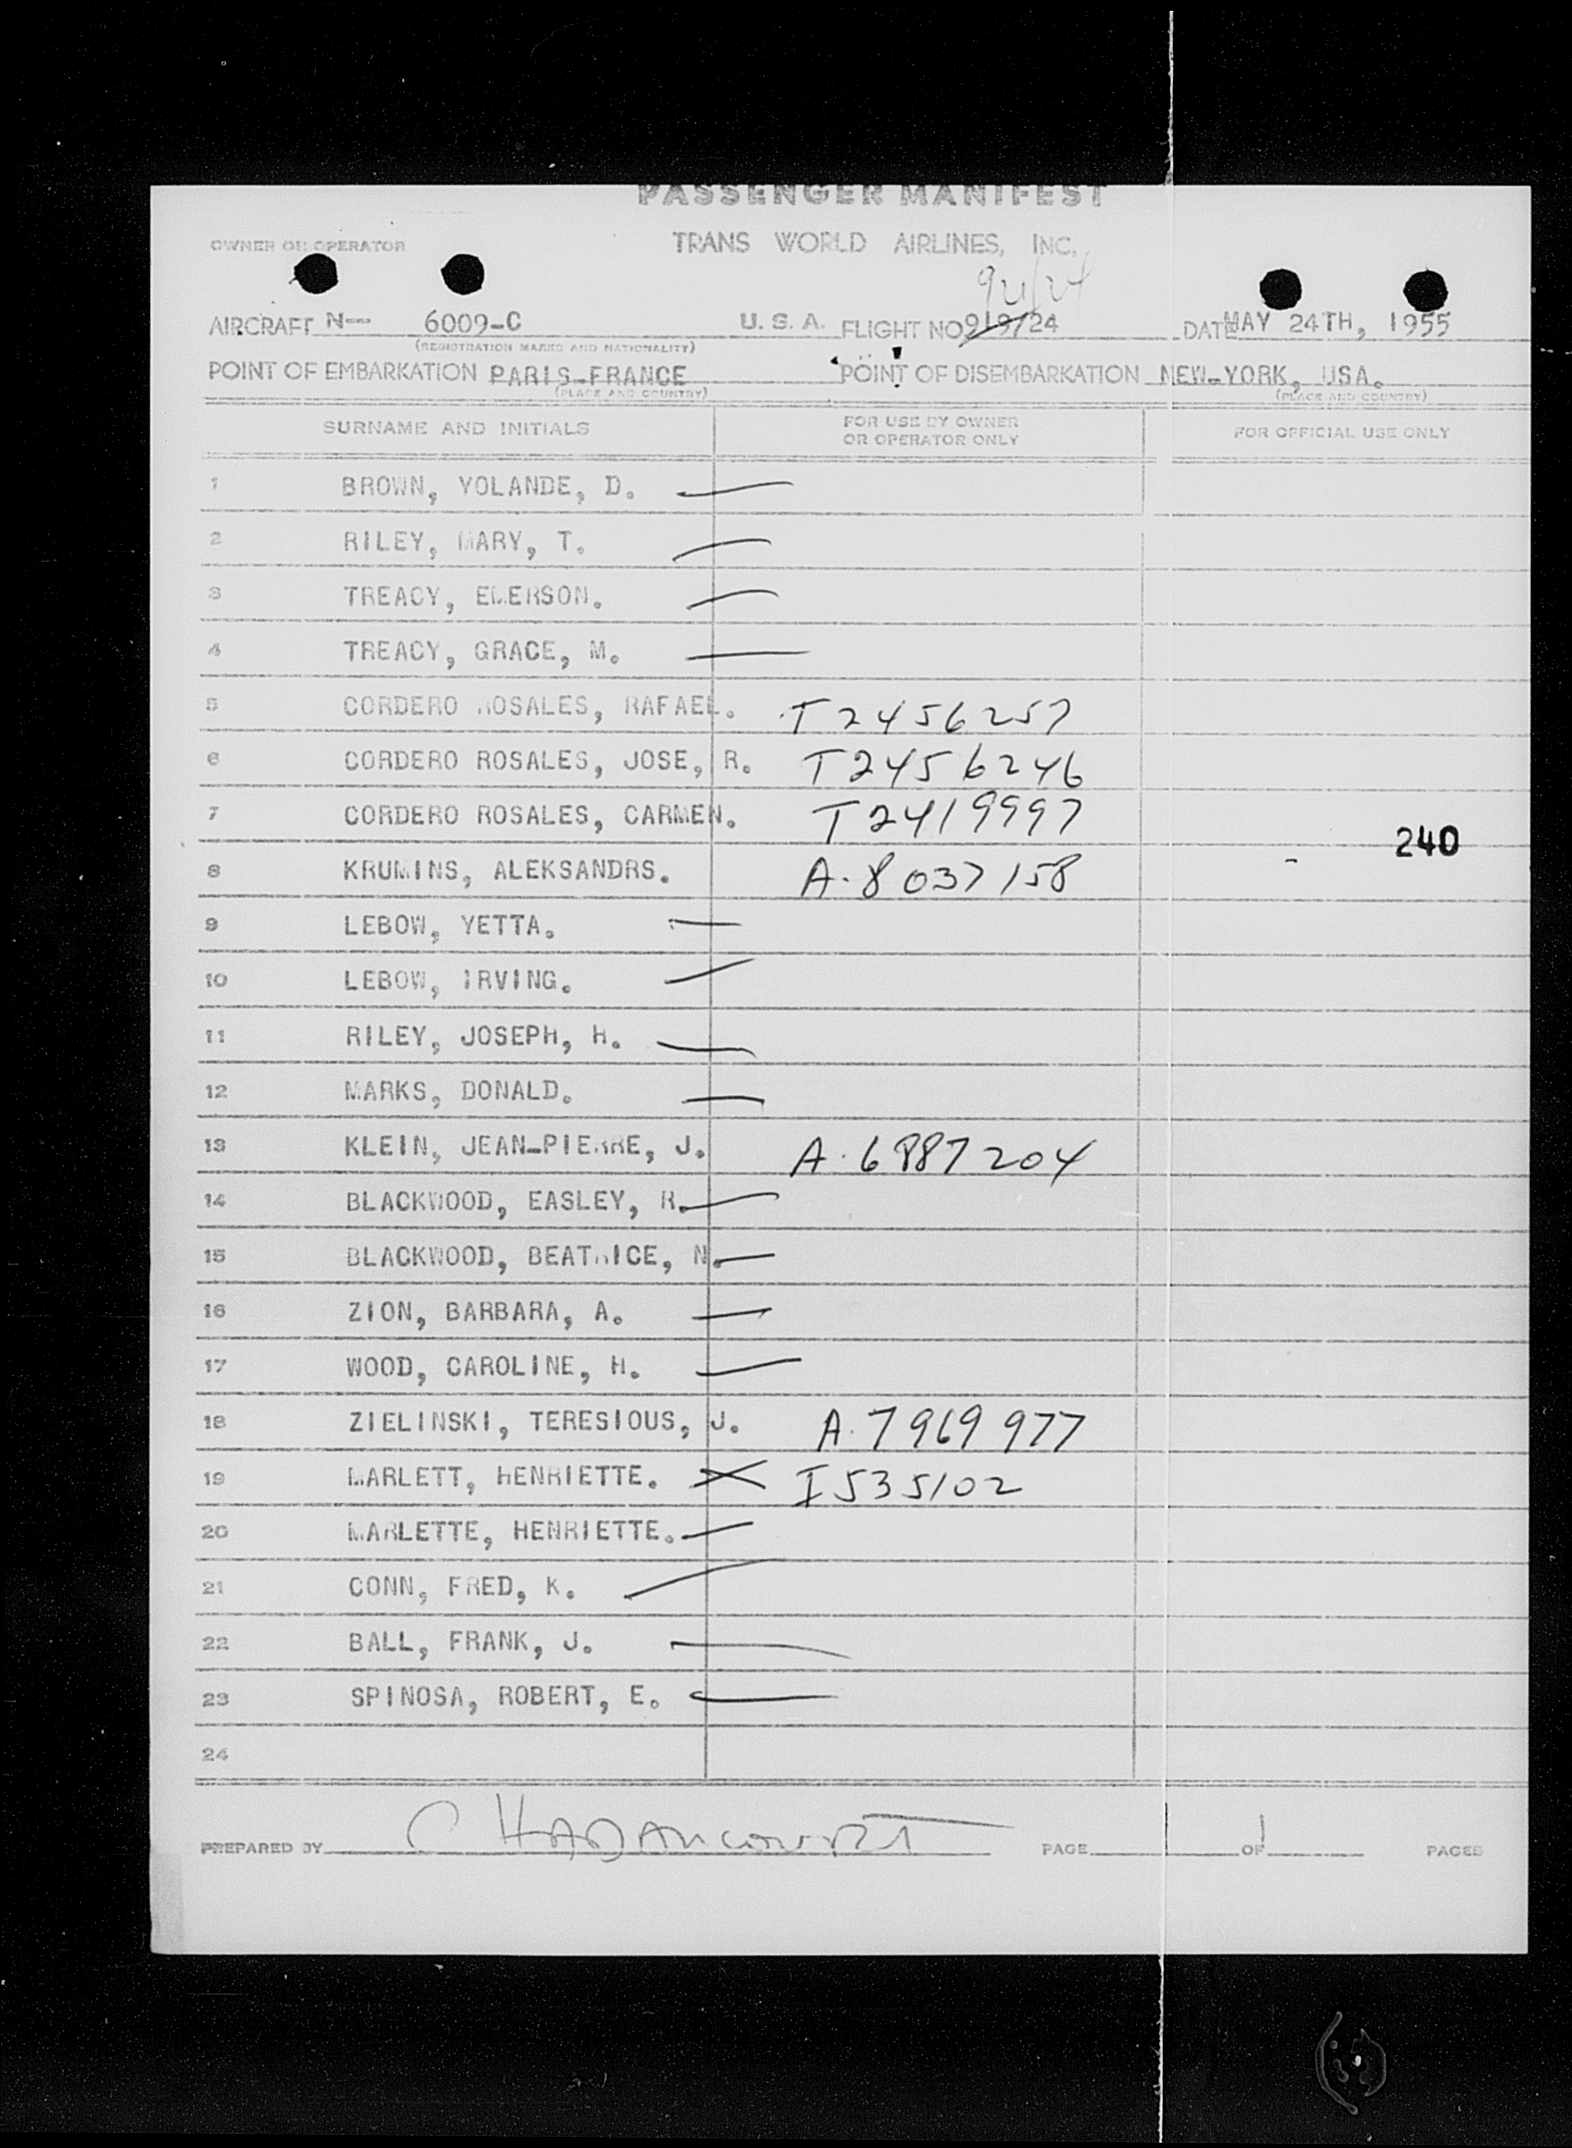 PASSENGER MANIFEST
OWNER OR OPERATOR TRANS WORLD AIRLINES, INC.
921/24
AIRCRAFT N-- 6009-C U.S.A. FLIGHT NO 919/24 DATE MAY 24TH, 1955
(REGISTRATION MARKS AND NATIONALITY)
POINT OF EMBARKATION PARIS-FRANCE POINT OF DISEMBARKATION NEW-YORK, USA.
(PLACE AND COUNTRY) (PLACE AND COUNTRY)
SURNAME AND INITIALS FOR USE BY OWNER OR OPERATOR ONLY FOR OFFICIAL USE ONLY
1 BROWN, YOLANDE, D.
2 RILEY, MARY, T.
3 TREACY, EMERSON.
4 TREACY, GRACE, M.
5 CORDERO ROSALES, RAFAEL. T2456257
6 CORDERO ROSALES, JOSE, R. T2456246
7 CORDERO ROSALES, CARMEN. T2419997
240
8 KRUMINS, ALEKSANDRS. A.8037158
9 LEBOW, YETTA.
10 LEBOW, IRVING.
11 RILEY, JOSEPH, H.
12 MARKS, DONALD.
13 KLEIN, JEAN-PIERRE, J. A.6887204
14 BLACKWOOD, EASLEY, R.
15 BLACKWOOD, BEATRICE, N.
16 ZION, BARBARA, A.
17 WOOD, CAROLINE, H.
18 ZIELINSKI, TERESIOUS, J. A.7969977
19 MARLETT, HENRIETTE. I535102
20 MARLETTE, HENRIETTE.
21 CONN, FRED, K.
22 BALL, FRANK, J.
23 SPINOSA, ROBERT, E.
24
PREPARED BY PAGE OF 1 PAGES